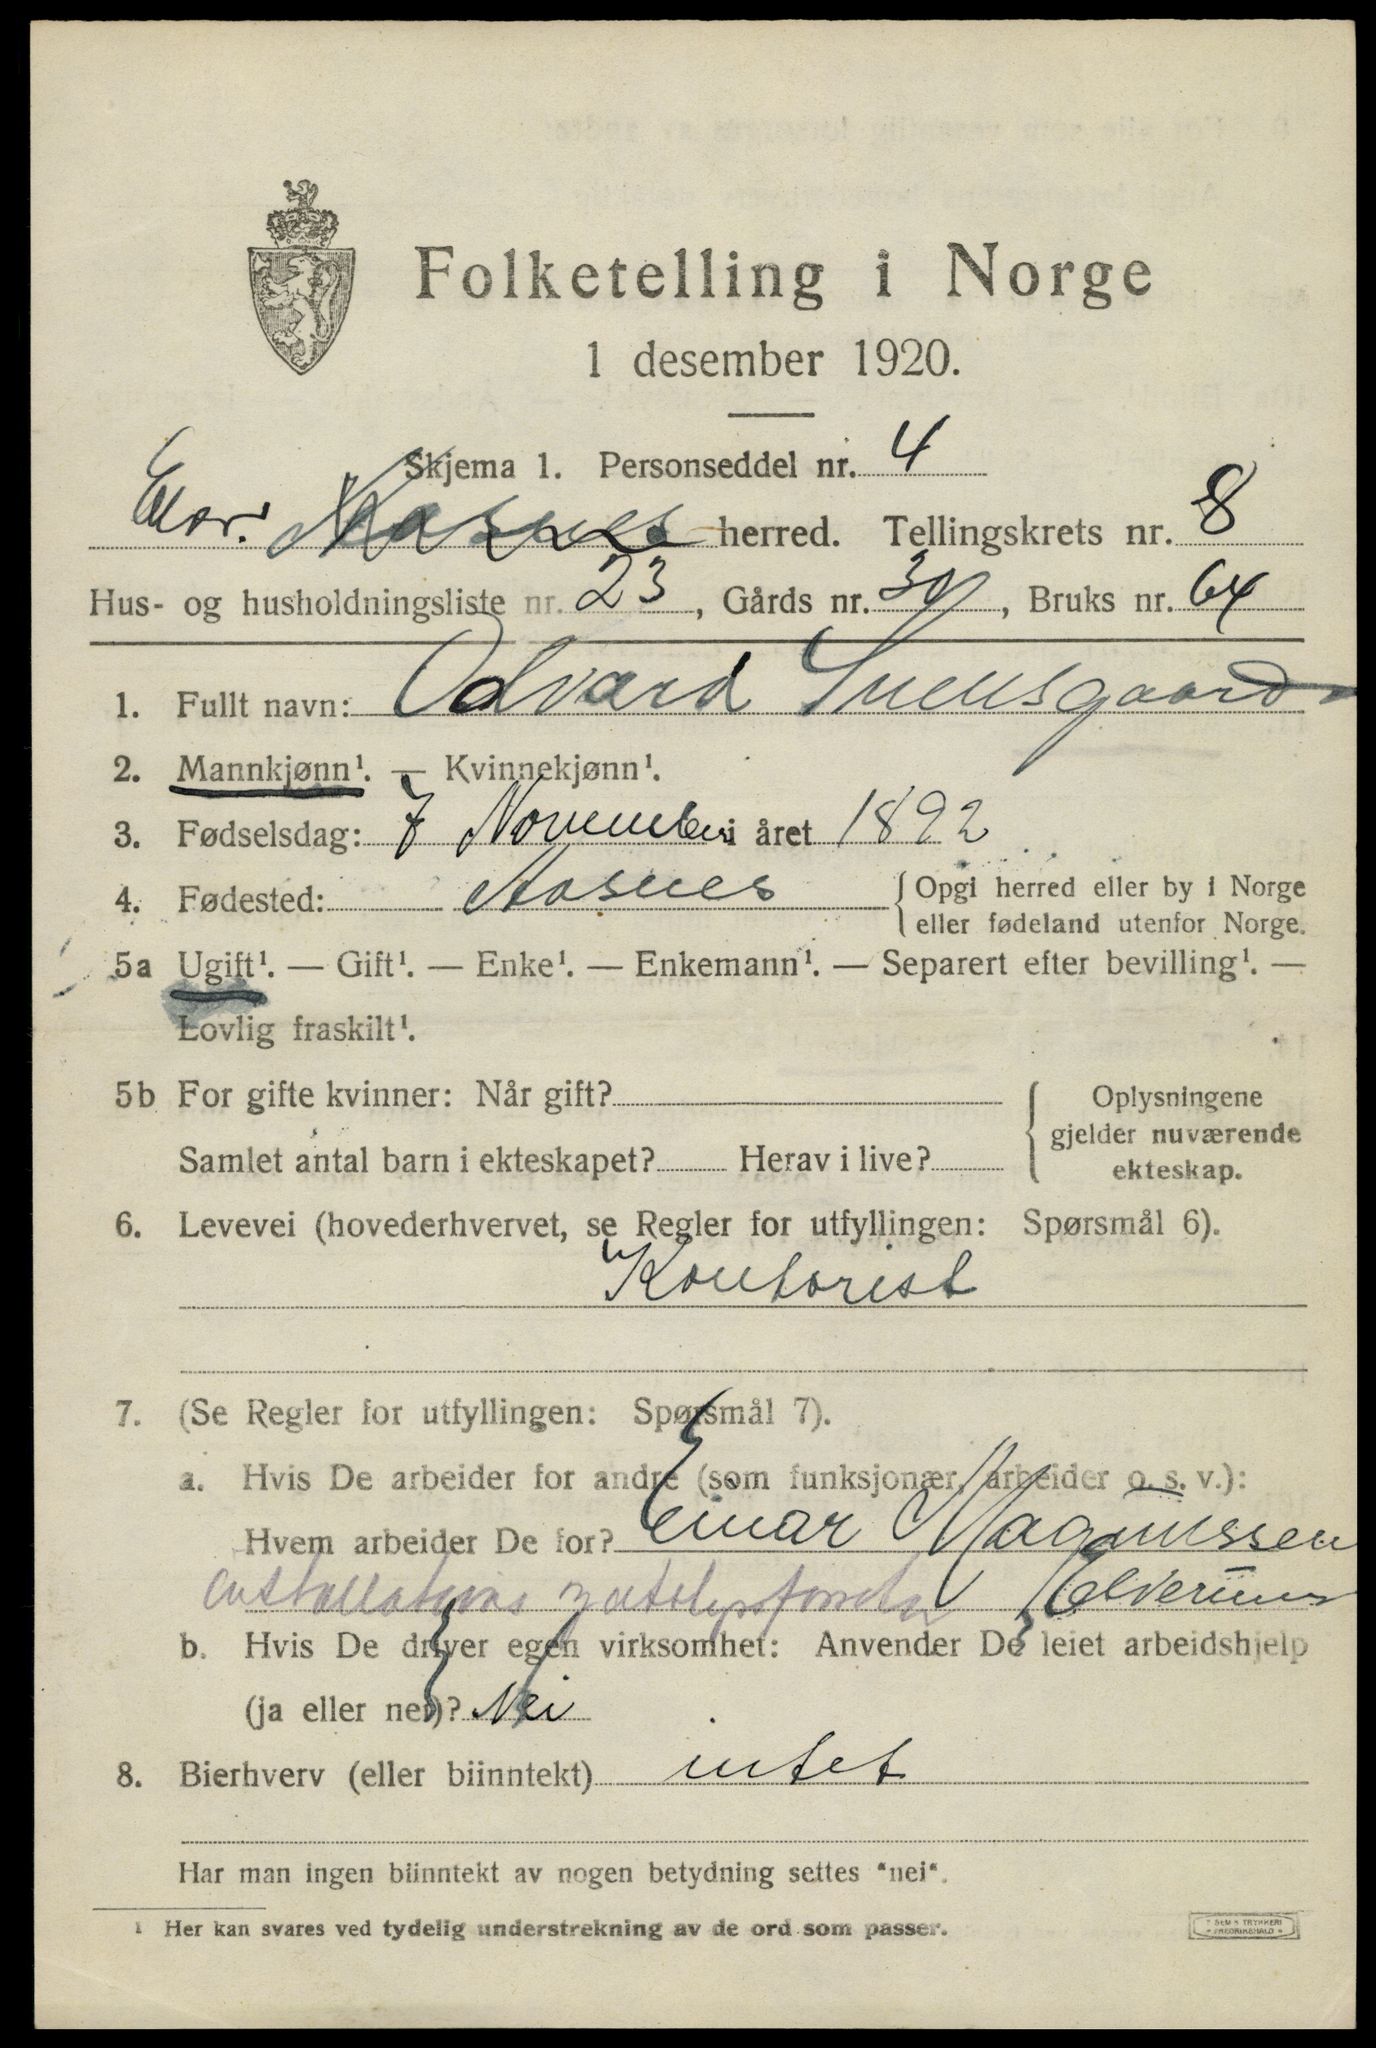 Folketelling i Norge
1 desember 1920.
Skjema 1. Personseddel nr. 4
Elver. Aasnes herred. Tellingskrets nr. 8
Hus- og husholdningsliste nr. 23, Gårds nr. 31, Bruks nr. 64
1. Fullt navn: Odvard Snensgaard
2. Mannkjønn¹. — Kvinnekjønn¹.
3. Fødselsdag: 7 November i året 1892
4. Fødested: Aasnes { Opgi herred eller by i Norge
eller fødeland utenfor Norge.
5a Ugift¹. — Gift¹. — Enke¹. — Enkemann¹. — Separert efter bevilling¹. —
Lovlig fraskilt¹.
5b For gifte kvinner: Når gift?
Samlet antal barn i ekteskapet? Herav i live?
Oplysningene
gjelder nuværende
ekteskap.
6. Levevei (hovederhvervet, se Regler for utfyllingen: Spørsmål 6).
Kontorist
7. (Se Regler for utfyllingen: Spørsmål 7).
a. Hvis De arbeider for andre (som funksjonær, arbeider o. s. v.):
Hvem arbeider De for? Einar Magnussen
Elverum
b. Hvis De driver egen virksomhet: Anvender De leiet arbeidshjelp
(ja eller nei)? Nei
8. Bierhverv (eller biinntekt) intet
Har man ingen biinntekt av nogen betydning settes "nei".
¹ Her kan svares ved tydelig understrekning av de ord som passer.
SEM & TRYKKERI
FREDRIKSHALD